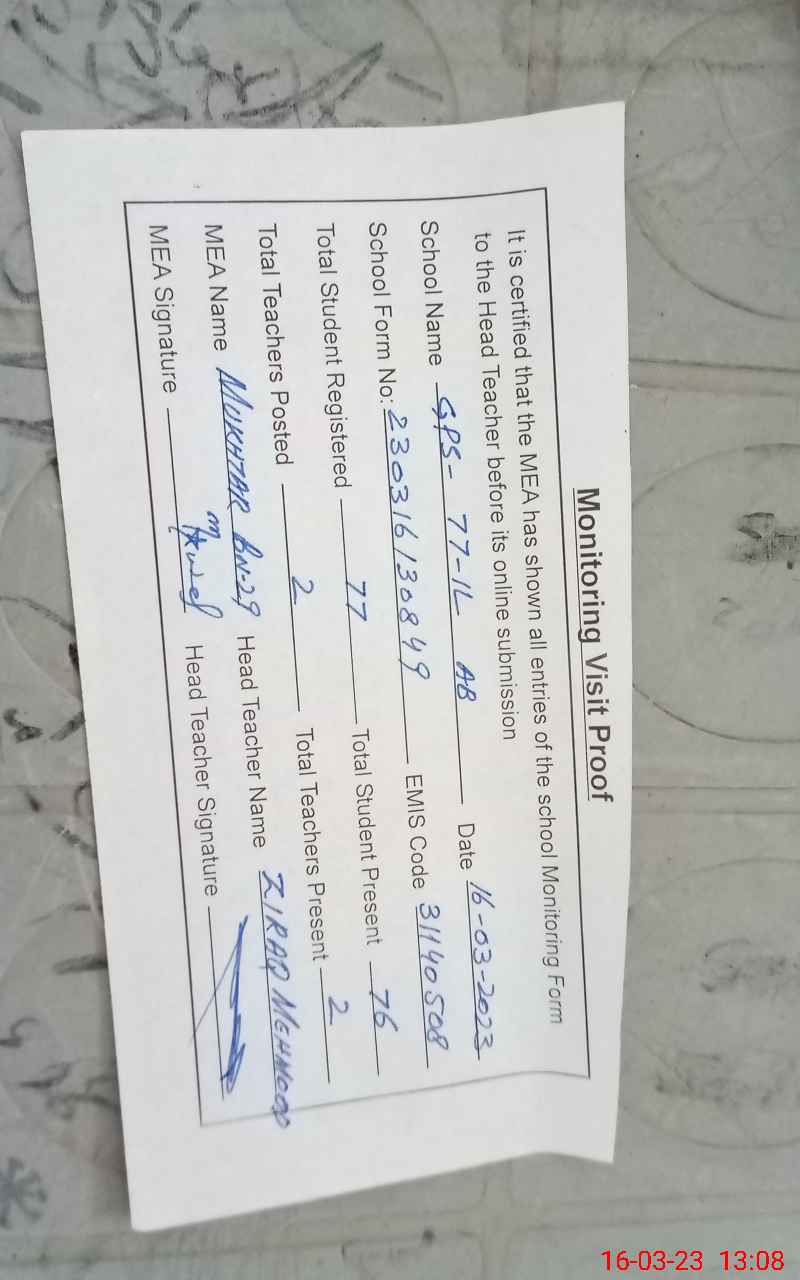 Monitoring Visit Proof
It is certified that the MEA has shown all entries of the school Monitoring Form
to the Head Teacher before its online submission
School Name GPS- 77-1L AB Date 16-03-2023
School Form No: 230316130849 EMIS Code 31140508
Total Student Registered 77 Total Student Present 76
Total Teachers Posted 2 Total Teachers Present 2
MEA Name MUKHTAR BN-29 Head Teacher Name ZIRAQ MEHMOOD
MEA Signature Head Teacher Signature
16-03-23 13:08